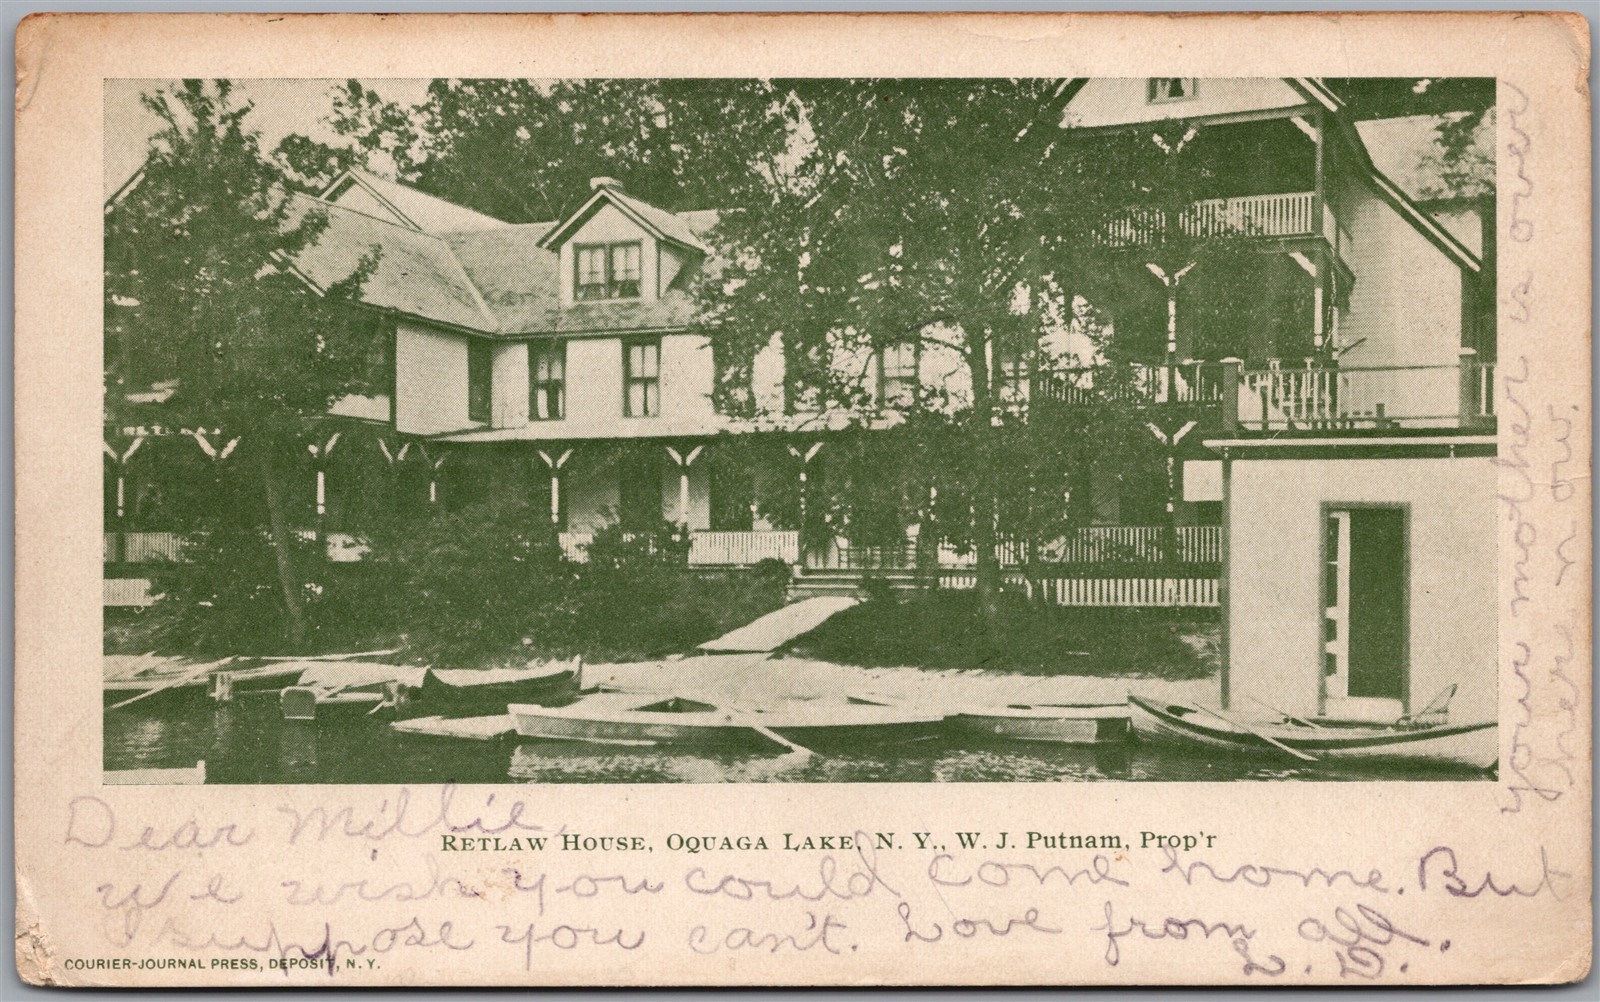 Dear Millie,
RETLAW HOUSE, OQUAGA LAKE, N. Y., W. J. Putnam, Prop'r
We wish you could come home. But
I suppose you can't. Love from all.
L. D.
COURIER-JOURNAL PRESS, DEPOSIT, N. Y.
your mother is over
here now.